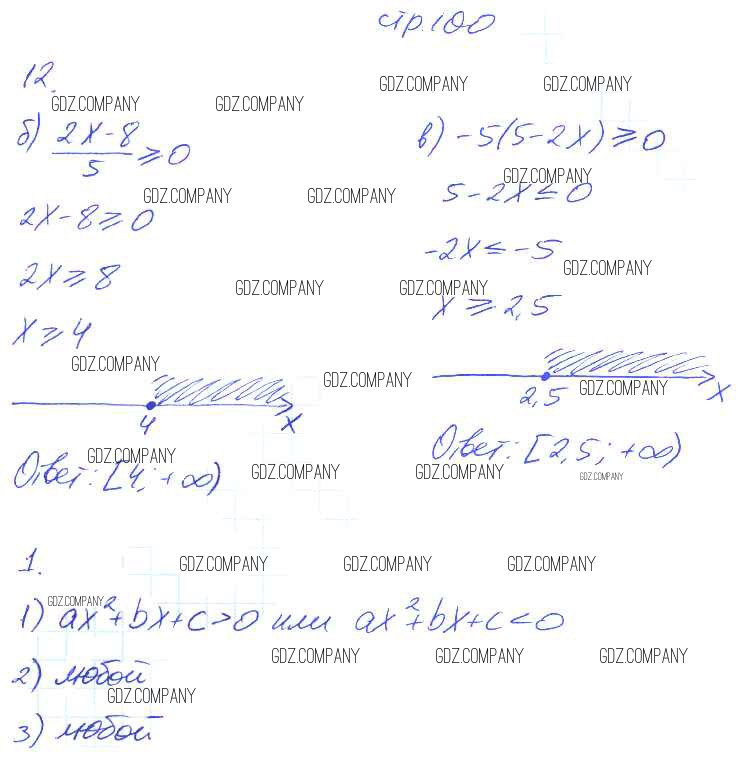 стр. 100
12.
б) (2x-8)/5 ⩾ 0
2x-8 ⩾ 0
2x ⩾ 8
x ⩾ 4
4 x
Ответ: [4; +∞)
в) -5(5-2x) ⩾ 0
5-2x ⩽ 0
-2x ⩽ -5
x ⩾ 2,5
2,5 x
Ответ: [2,5; +∞)
1.
1) ax²+bx+c>0 или ax²+bx+c<0
2) любой
3) любой
GDZ.COMPANY GDZ.COMPANY
GDZ.COMPANY GDZ.COMPANY
GDZ.COMPANY
GDZ.COMPANY GDZ.COMPANY
GDZ.COMPANY
GDZ.COMPANY GDZ.COMPANY
GDZ.COMPANY
GDZ.COMPANY GDZ.COMPANY
GDZ.COMPANY
GDZ.COMPANY GDZ.COMPANY GDZ.COMPANY
GDZ.COMPANY GDZ.COMPANY GDZ.COMPANY
GDZ.COMPANY
GDZ.COMPANY GDZ.COMPANY GDZ.COMPANY
GDZ.COMPANY